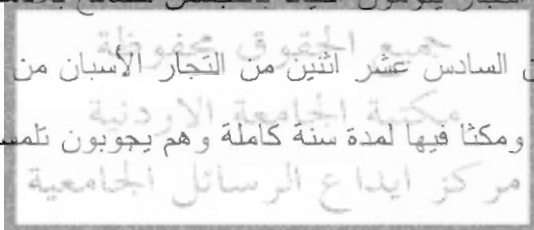 جميع الحقوق محفوظة
ن السادس عشر اثنين من التجار الأسبان من
مكتبة الجامعة الاردنية
ومكثا فيها لمدة سنة كاملة وهم يجوبون تلمس
مركز ايداع الرسائل الجامعية